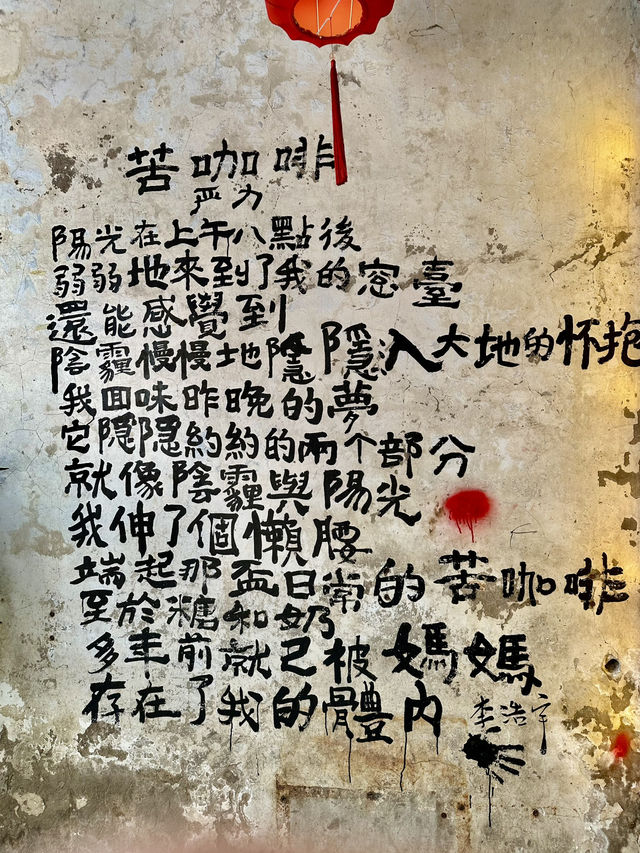 苦咖啡
严力
陽光在上午八點後
弱弱地來到了我的窓臺
還能感覺到
陰霾慢慢地隱隱入大地的怀抱
我回味昨晚的夢
它隱隱約約的兩个部分
就像陰霾與陽光
我伸了個懶腰
端起那盃日常的苦咖啡
至於糖和奶
多年前就已被媽媽
存在了我的體内
李浩宇